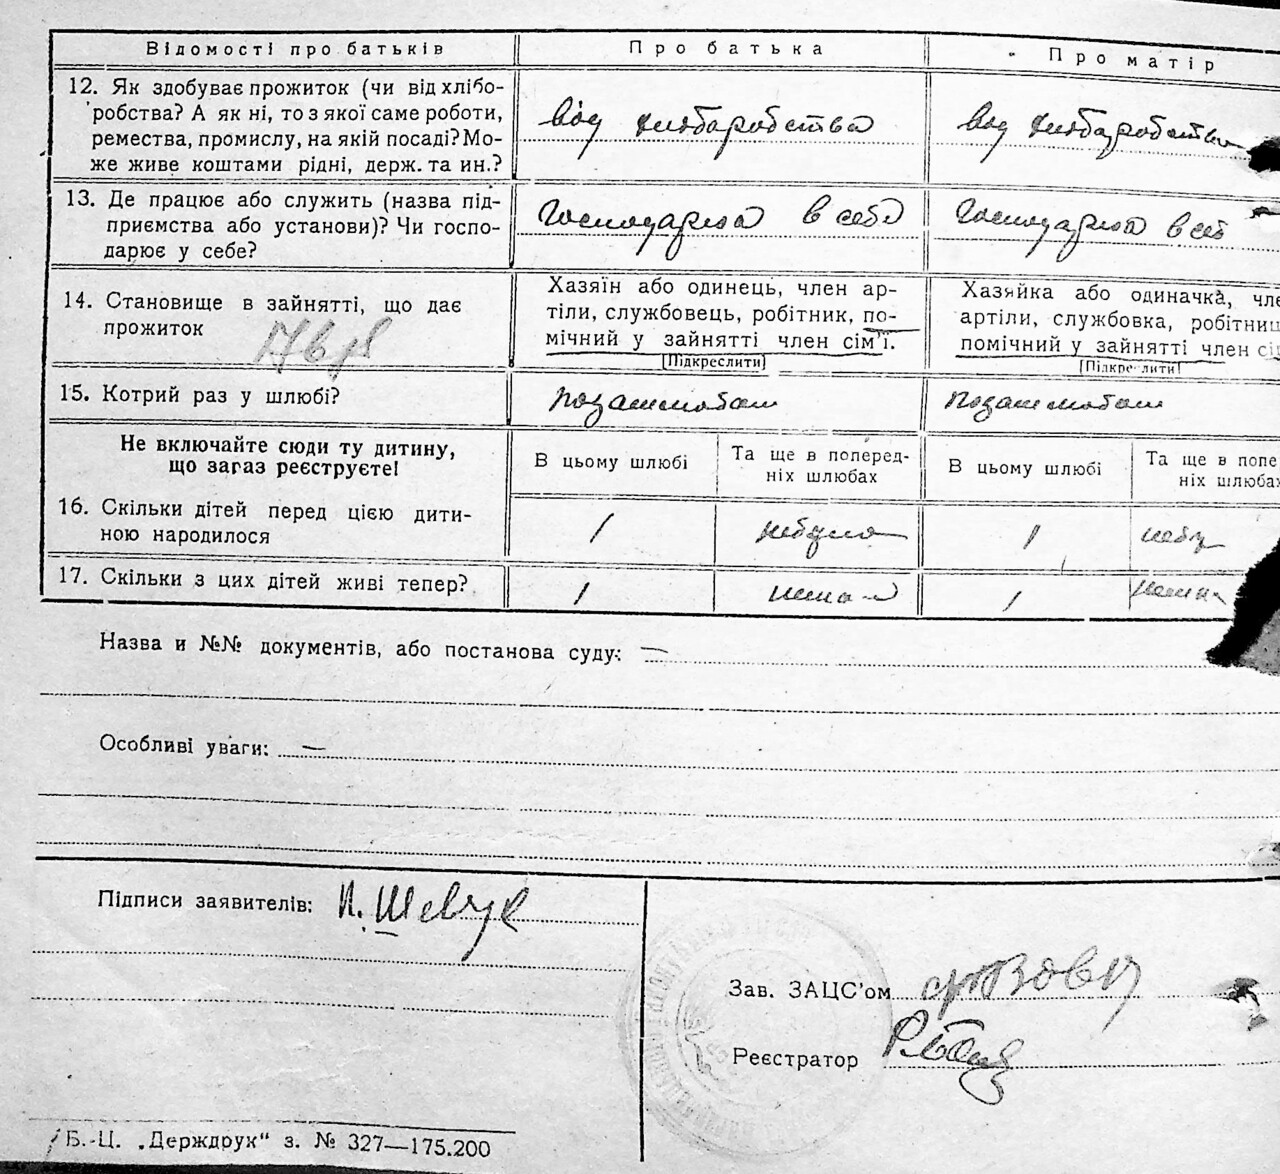 Відомості про батьків Про батька Про матір
12. Як здобуває прожиток (чи від хлібо-
робства? А як ні, то з якої саме роботи,
ремества, промислу, на якій посаді? Мо-
же живе коштами рідні, держ. та ин.?
від хліборобства від хліборобства
13. Де працює або служить (назва під-
приємства або установи)? Чи госпо-
дарює у себе?
Господарює в себе Господарює в себ
14. Становище в зайнятті, що дає
прожиток
Хазяїн або одинець, член ар-
тіли, службовець, робітник, по-
мічний у зайнятті член сім'ї.
[Підкреслити]
Хазяйка або одиначка, чле
артіли, службовка, робітниц
помічний у зайнятті член сі
[Підкреслити]
15. Котрий раз у шлюбі?
Не включайте сюди ту дитину,
що зараз реєструєте!
В цьому шлюбі Та ще в поперед-
ніх шлюбах
В цьому шлюбі Та ще в попе
ніх шлюбах
16. Скільки дітей перед цією дити-
ною народилося
1 небуло 1 небу
17. Скільки з цих дітей живі тепер?
1 1
Назва и №№ документів, або постанова суду: —
Особливі уваги: —
Підписи заявителів: Шевчук
Зав. ЗАЦС'ом
Реєстратор
Б.-Ц. „Держдрук“ з. № 327—175.200